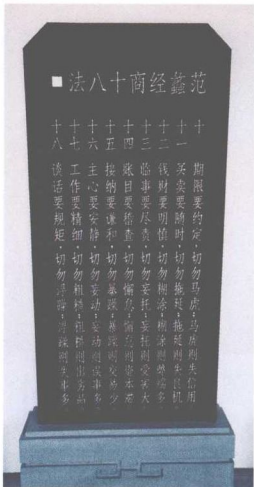 范蠡经商十八法
十 期限要约定,切勿马虎,马虎则失信用
十一 买卖要随时,切勿拖延,拖延则失良机
十二 钱财要明慎,切勿糊涂,糊涂则弊端多
十三 临事要尽责,切勿妄托,妄托则受害大
十四 账目要稽查,切勿懈怠,懈怠则资本滞
十五 接纳要谦和,切勿暴躁,暴躁则交易少
十六 主心要安静,切勿妄动,妄动则误事多
十七 工作要精细,切勿粗糙,粗糙则出劣品
十八 谈话要规矩,切勿浮躁,浮躁则失事多